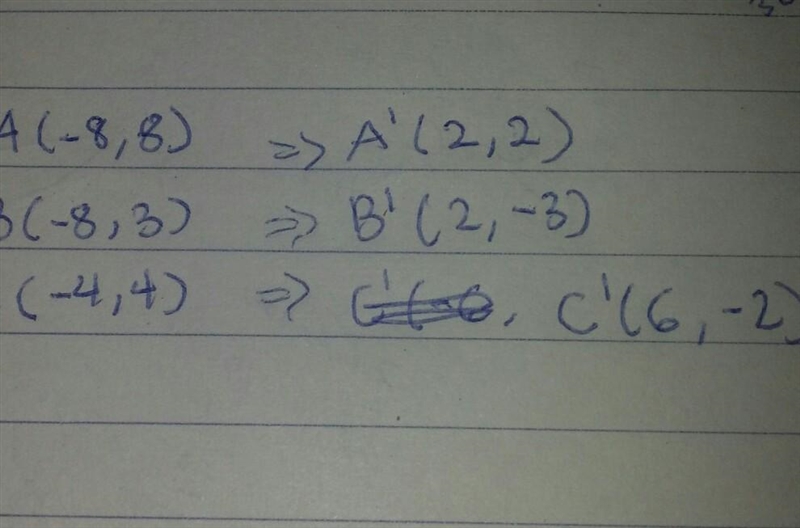 A(-8,8) => A'(2,2)
B(-8,3) => B'(2,-3)
(-4,4) => C'(6,-2)